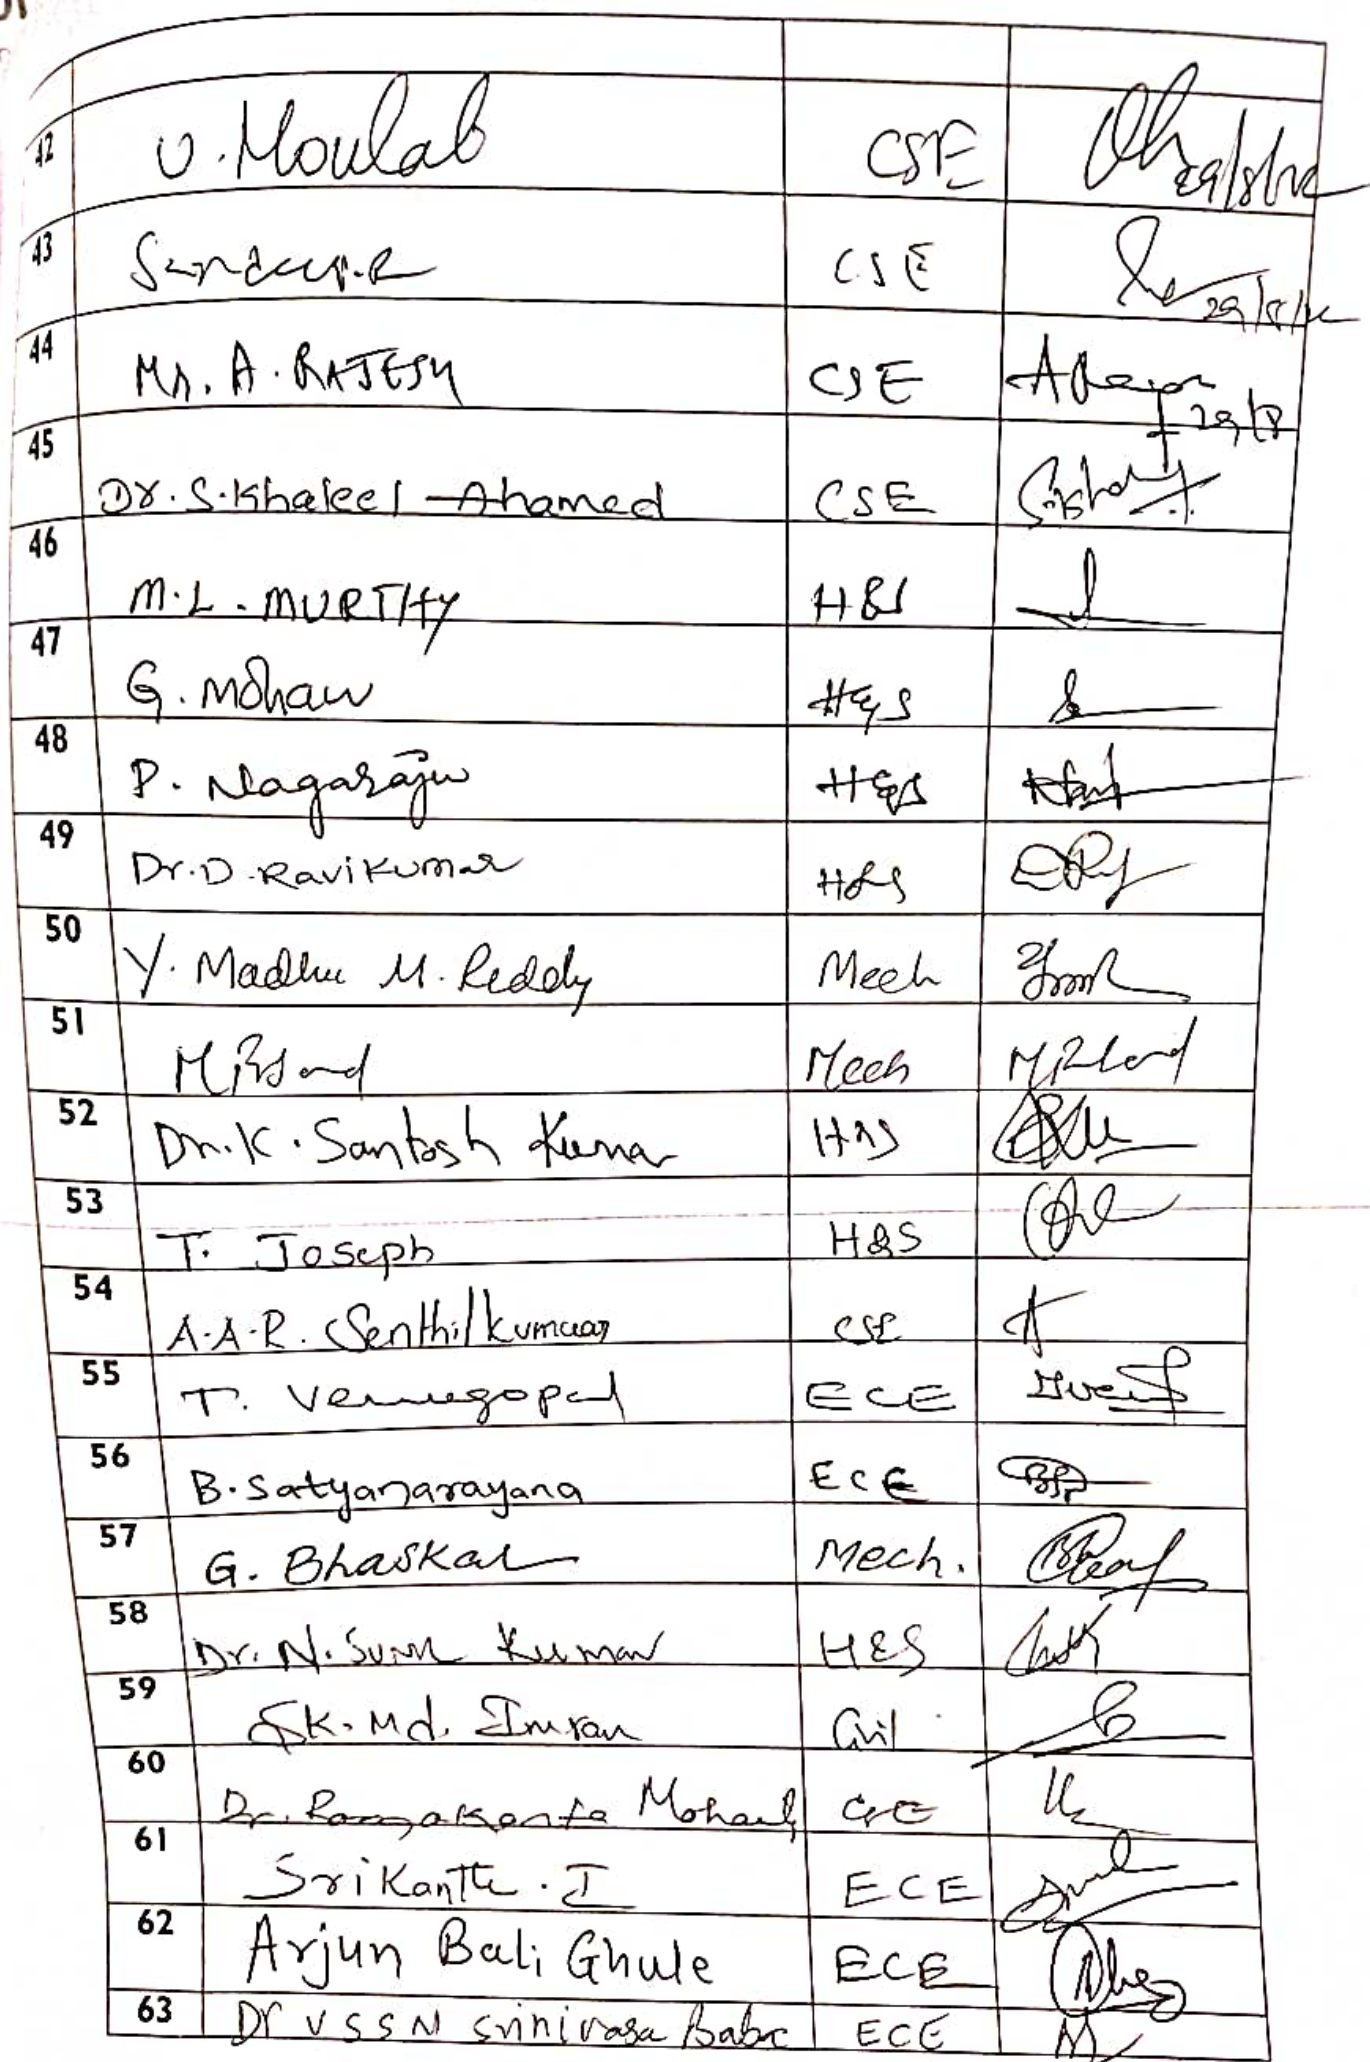 42 U. Moulab CSE 29/8/
43 Sandeep.R CSE 29/8/
44 Mr. A. RAJESH CSE 29/8
45 Dr. S. Khaleel Ahamed CSE
46 M.L. MURTHY H&S
47 G. Mohan H&S
48 P. Nagaraju H&S
49 Dr. D. Ravikumar H&S
50 Y. Madhu M. Reddy Mech
51 Mech
52 Dr. K. Santosh Kumar H&S
53 T. Joseph H&S
54 A.A.R. Senthilkumaar CSE
55 T. Venugopal ECE
56 B. Satyanarayana ECE
57 G. Bhaskar Mech.
58 Dr. N. Sunil Kumar H&S
59 SK. Md. Imran Civil
60 Dr. Mohanty
61 Srikanth. I ECE
62 Arjun Bali Ghule ECE
63 Dr V S S N Srinivasa Baba ECE